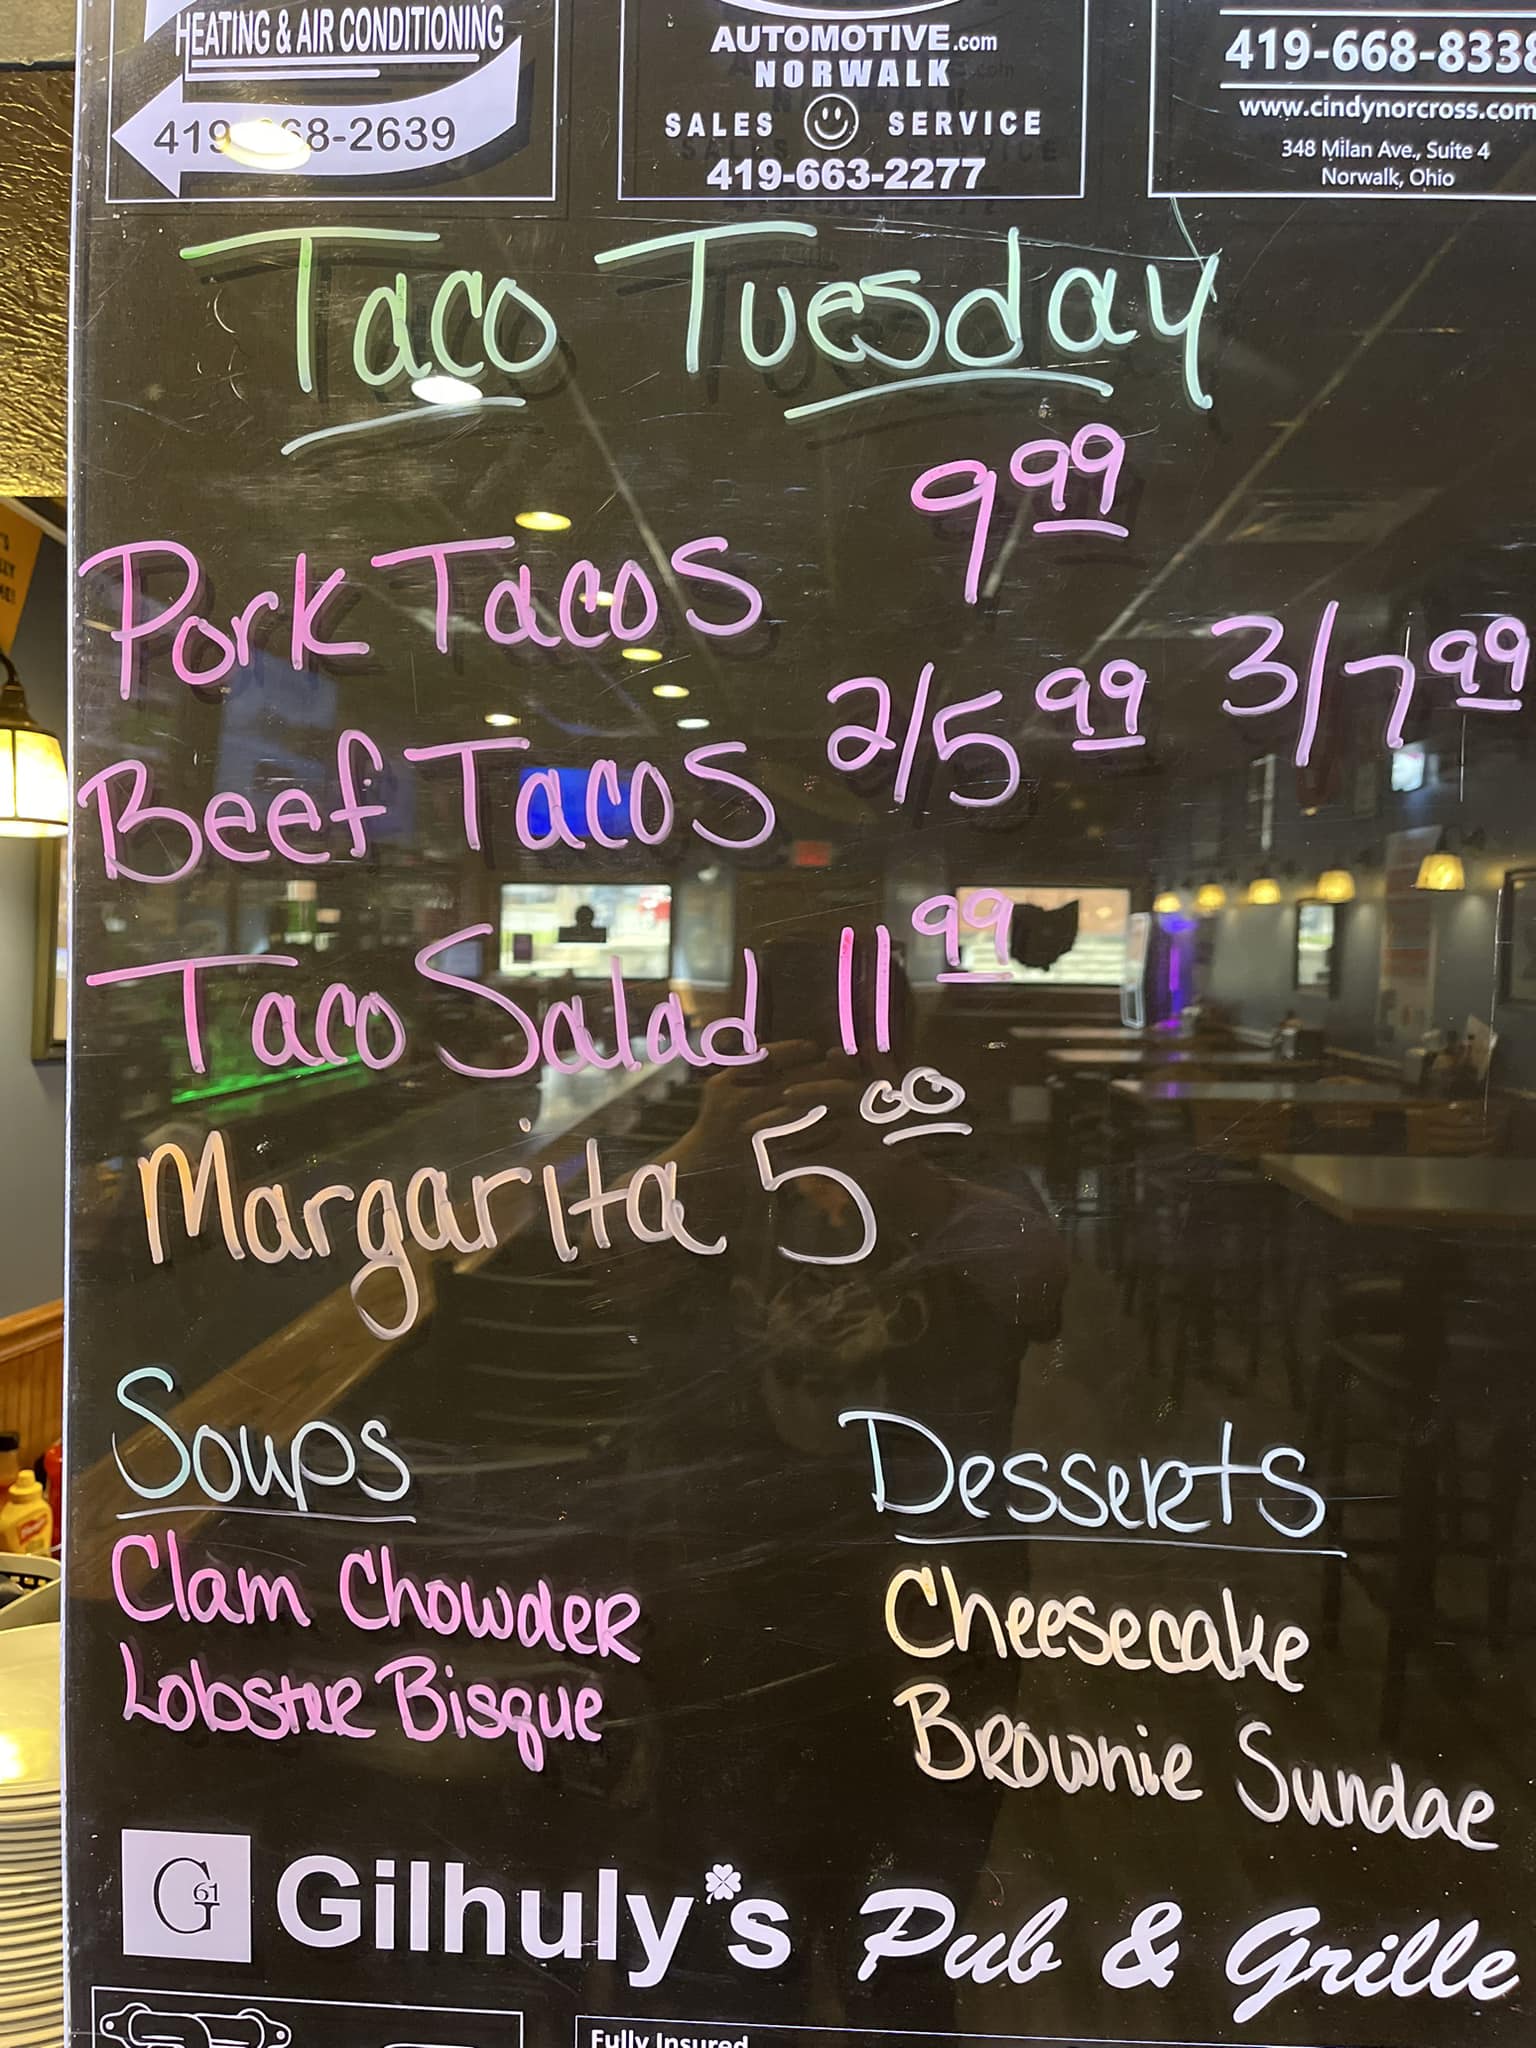 HEATING & AIR CONDITIONING
419-668-2639
AUTOMOTIVE.com
NORWALK
SALES SERVICE
419-663-2277
419-668-8338
www.cindynorcross.com
348 Milan Ave., Suite 4
Norwalk, Ohio
Taco Tuesday
Pork Tacos 9.99
Beef Tacos 2/5.99 3/7.99
Taco Salad 11.99
Margarita 5.00
Soups
Clam Chowder
Lobster Bisque
Desserts
Cheesecake
Brownie Sundae
G61 Gilhuly's Pub & Grille
Fully Insured